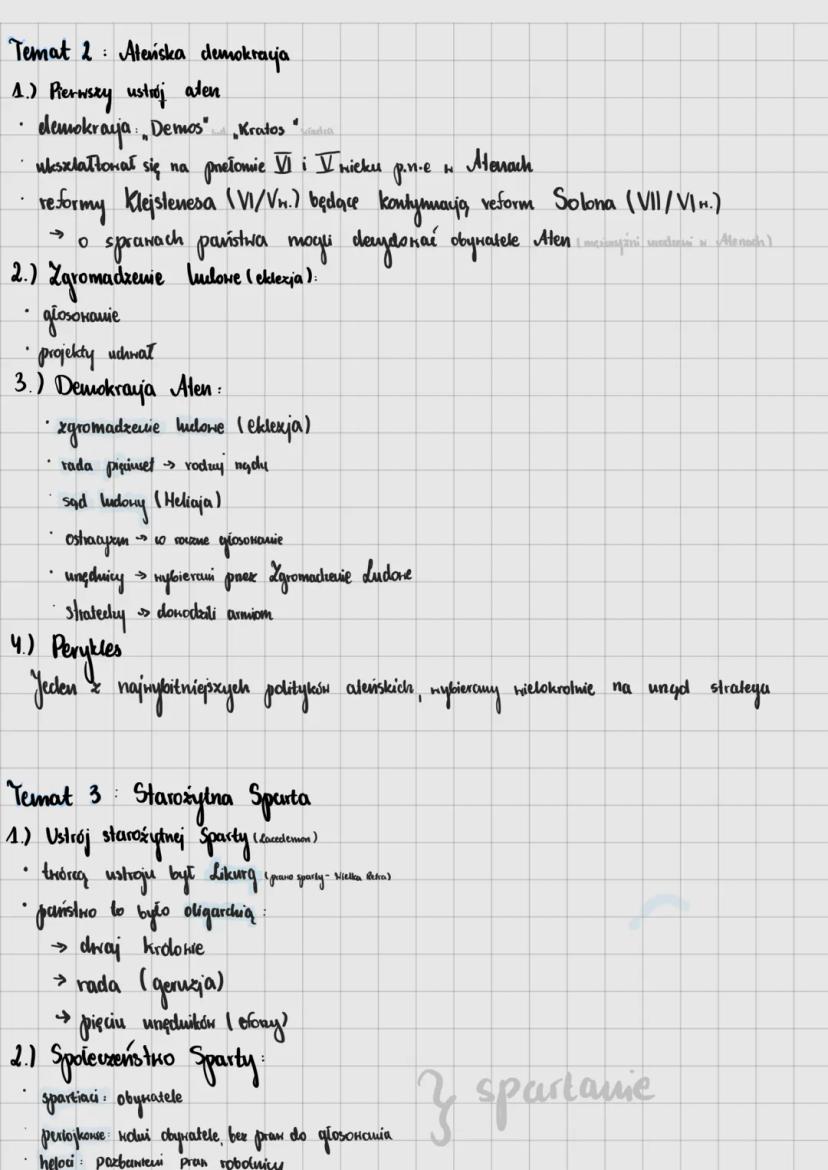 Temat 2 : Ateńska demokracja
1.) Pierwszy ustrój aten
· demokracja: „Demos" lud „Kratos" władza
· ukształtował się na przełomie VI i V wieku p.n.e w Atenach
· reformy Klejstenesa (VI/Vw.) będące kontynuacją reform Solona (VII/VIw.)
→ o sprawach państwa mogli decydować obywatele Aten (mężczyźni urodzeni w Atenach)
2.) Zgromadzenie ludowe (eklezja):
· głosowanie
· projekty uchwał
3.) Demokracja Aten:
· zgromadzenie ludowe (eklezja)
· rada pięciuset → rodzaj rządu
· sąd ludowy (Heliaja)
· ostracyzm → co roczne głosowanie
· urzędnicy → wybierani przez Zgromadzenie Ludowe
· stratedzy → dowodzili armiom
4.) Perykles
Jeden z najwybitniejszych polityków ateńskich, wybierany wielokrotnie na urząd stratega
Temat 3 : Starożytna Sparta
1.) Ustrój starożytnej Sparty (Lacedemon)
· twórcą ustroju był Likurg (prawo sparty - Wielka Retra)
· państwo to było oligarchią :
→ dwaj królowie
→ rada (geruzja)
→ pięciu urzędników (eforzy)
2.) Społeczeństwo Sparty:
· spartiaci: obywatele
} spartanie
· periojkowie: wolni obywatele, bez praw do głosowania
· heloci: pozbawieni praw robotnicy